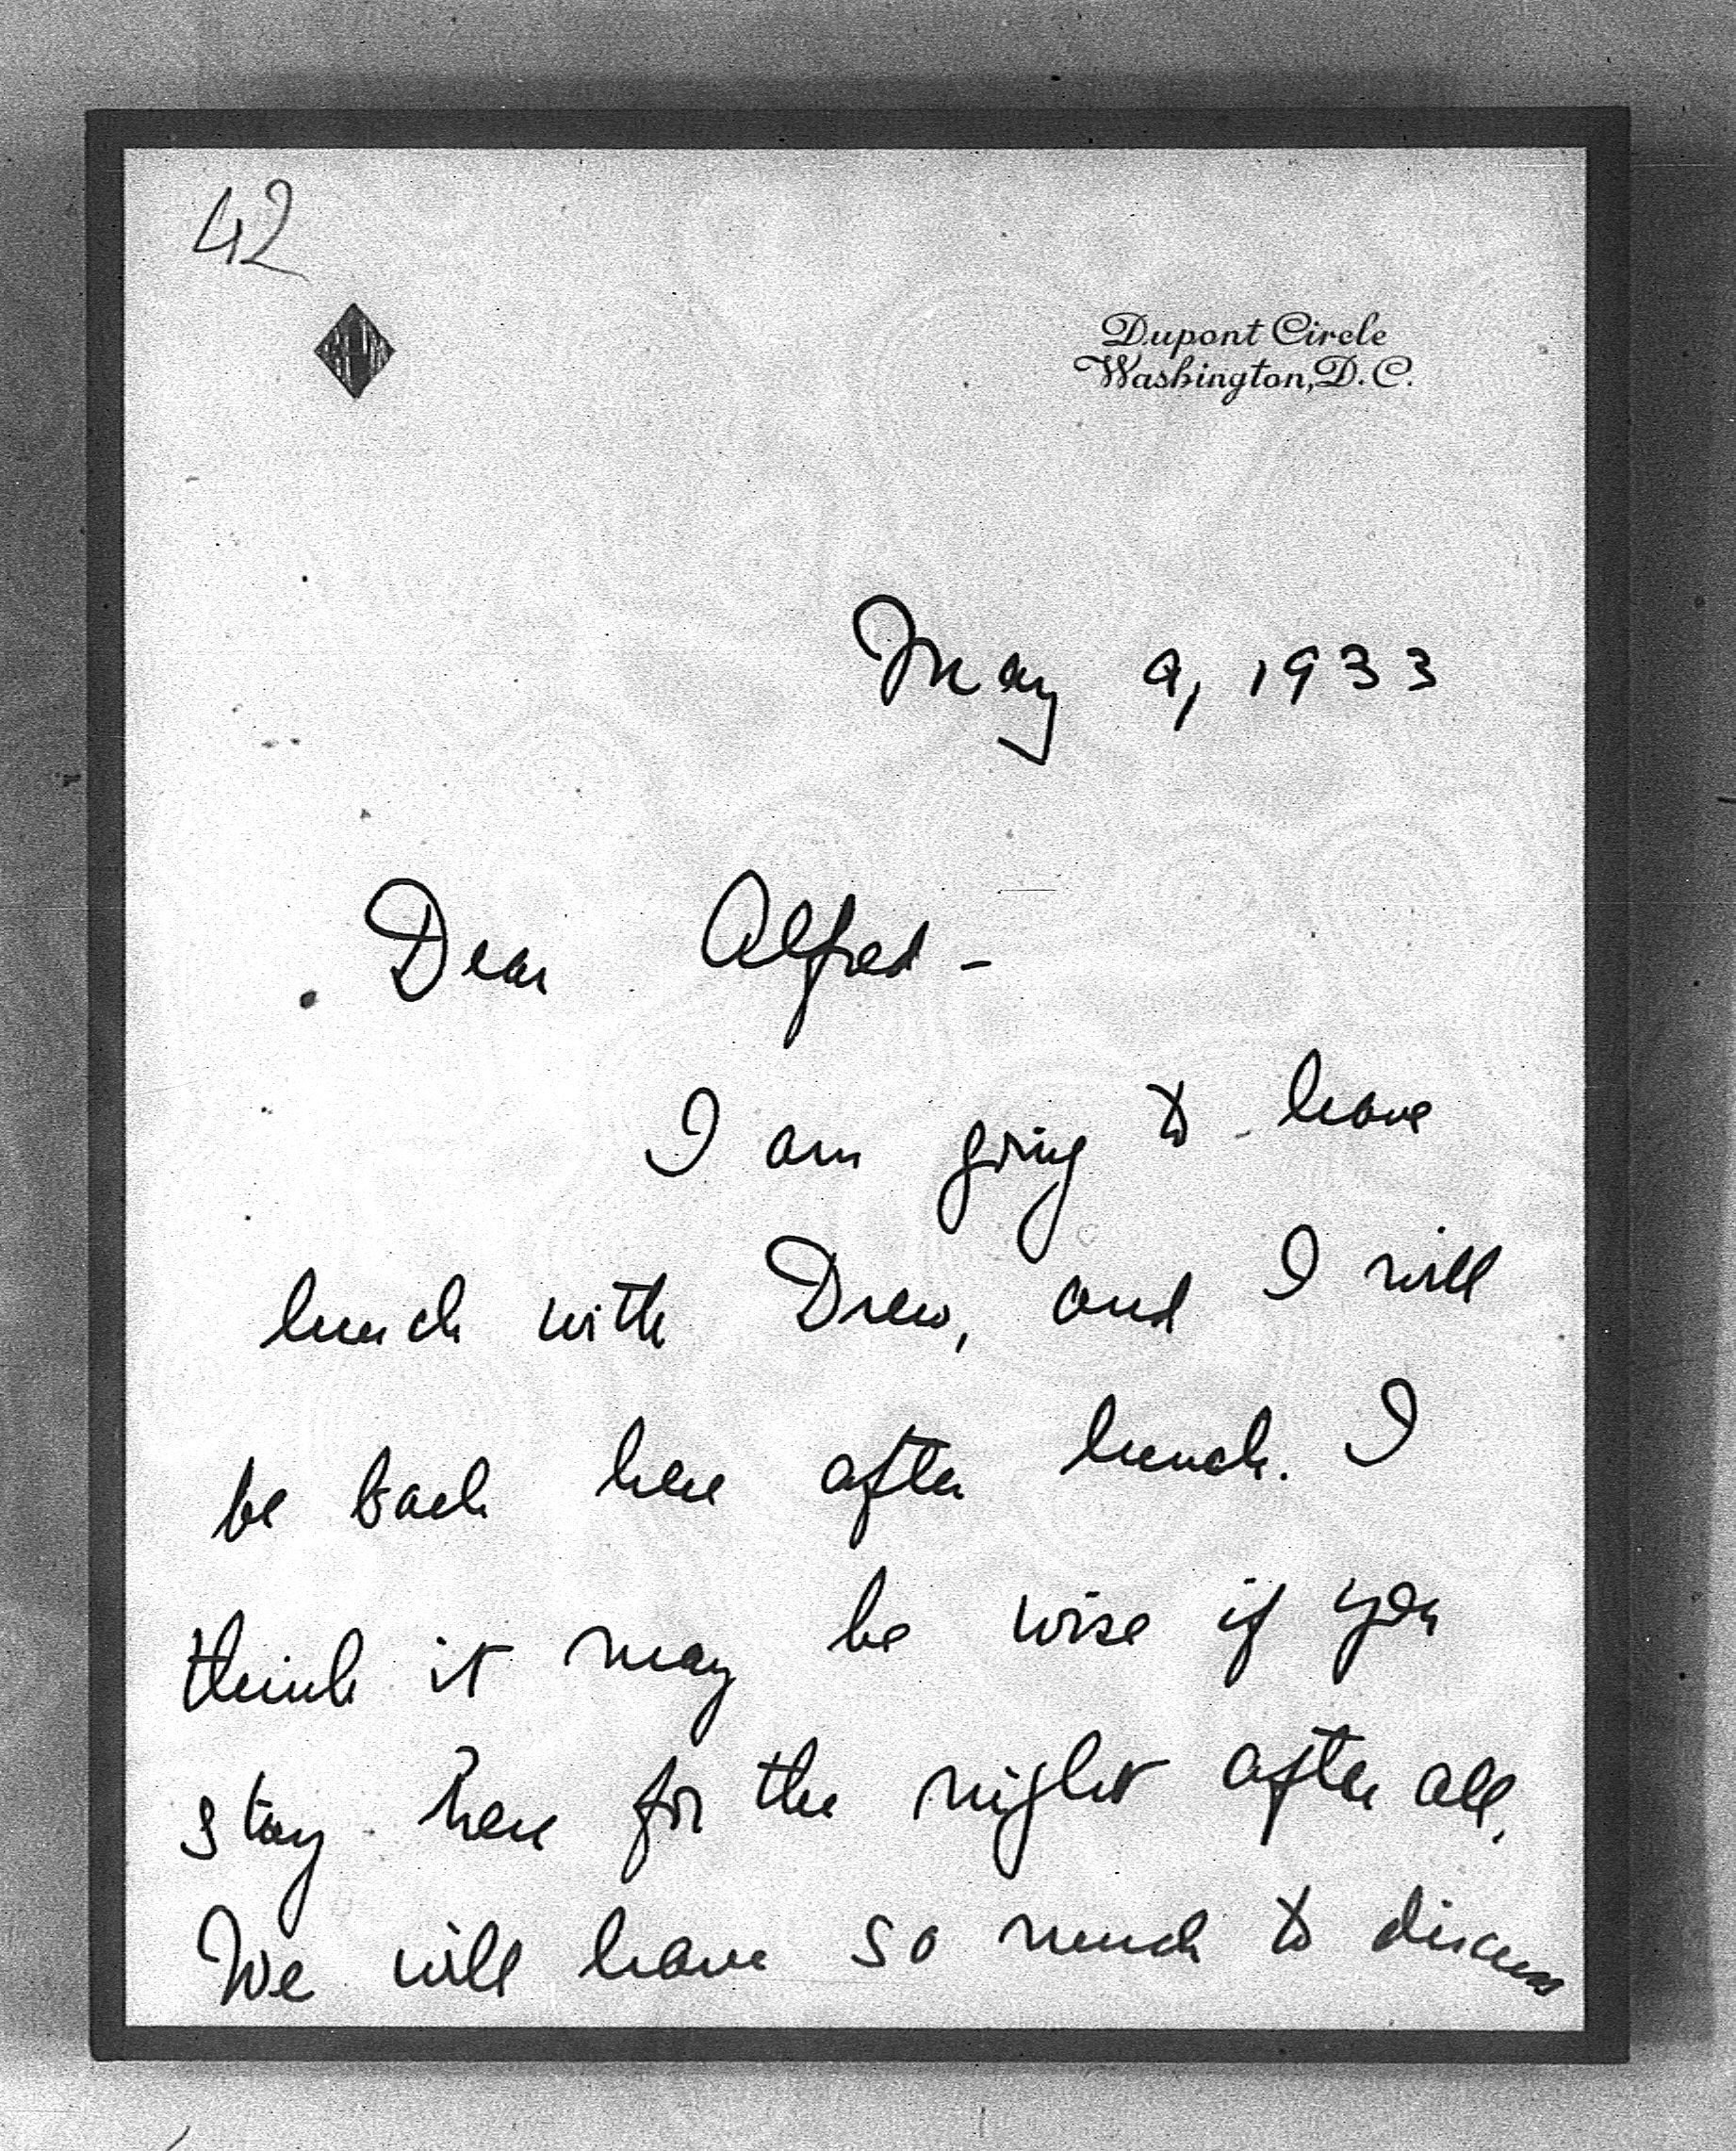 42
Dupont Circle
Washington, D.C.
May 9, 1933
Dear Alfred -
I am going to have
lunch with Drew, and I will
be back here after lunch. I
think it may be wise if you
stay here for the night after all.
We will have so much to discuss